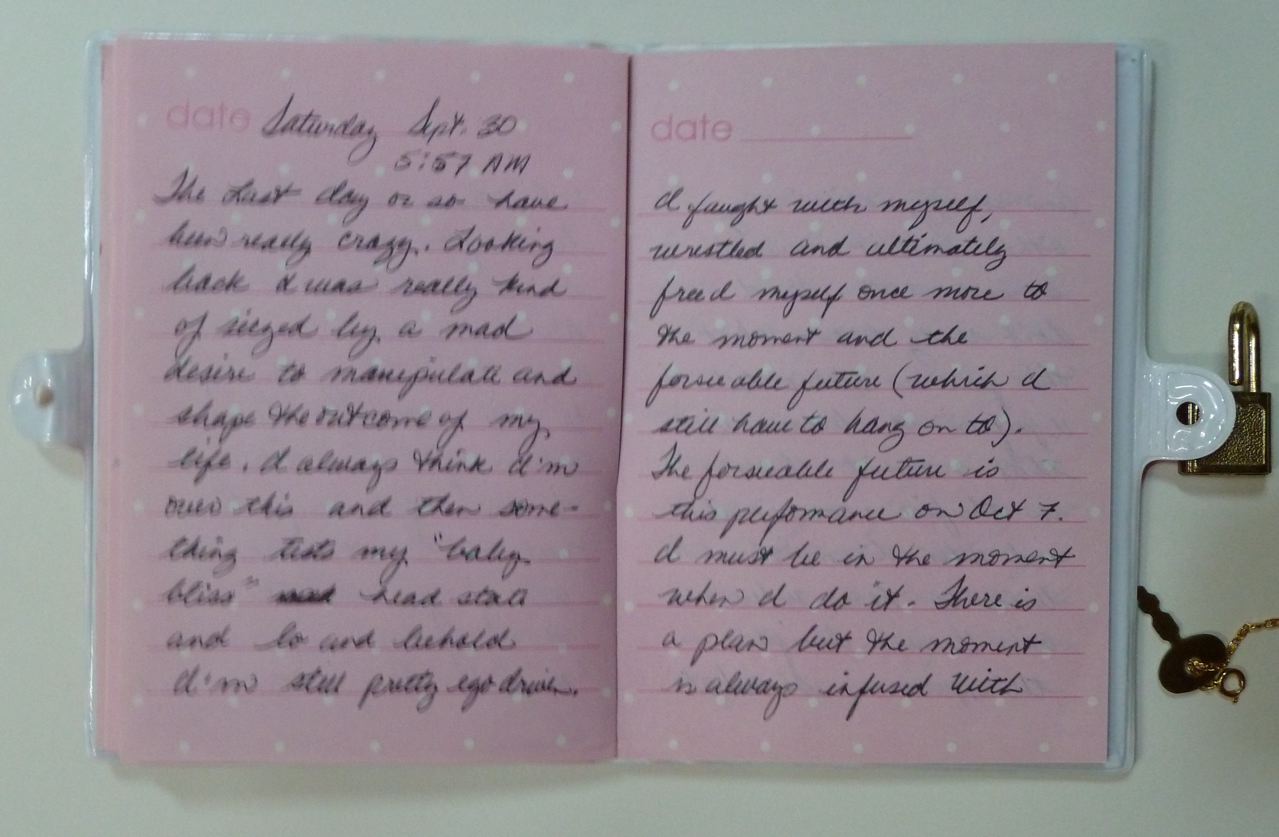 date Saturday Sept. 30
5:57 AM
The last day or so have
been really crazy. Looking
back I was really kind
of seized by a mad
desire to manipulate and
shape the outcome of my
life. I always think I'm
over this and then some-
thing tests my "baby
bliss" head state
and lo and behold
I'm still pretty ego driven.
date
I faught with myself,
wrestled and ultimately
freed myself once more to
the moment and the
forseeable future (which I
still have to hang on to).
The forseeable future is
this perfomance on Oct 7.
I must be in the moment
when I do it. There is
a plan but the moment
is always infused with